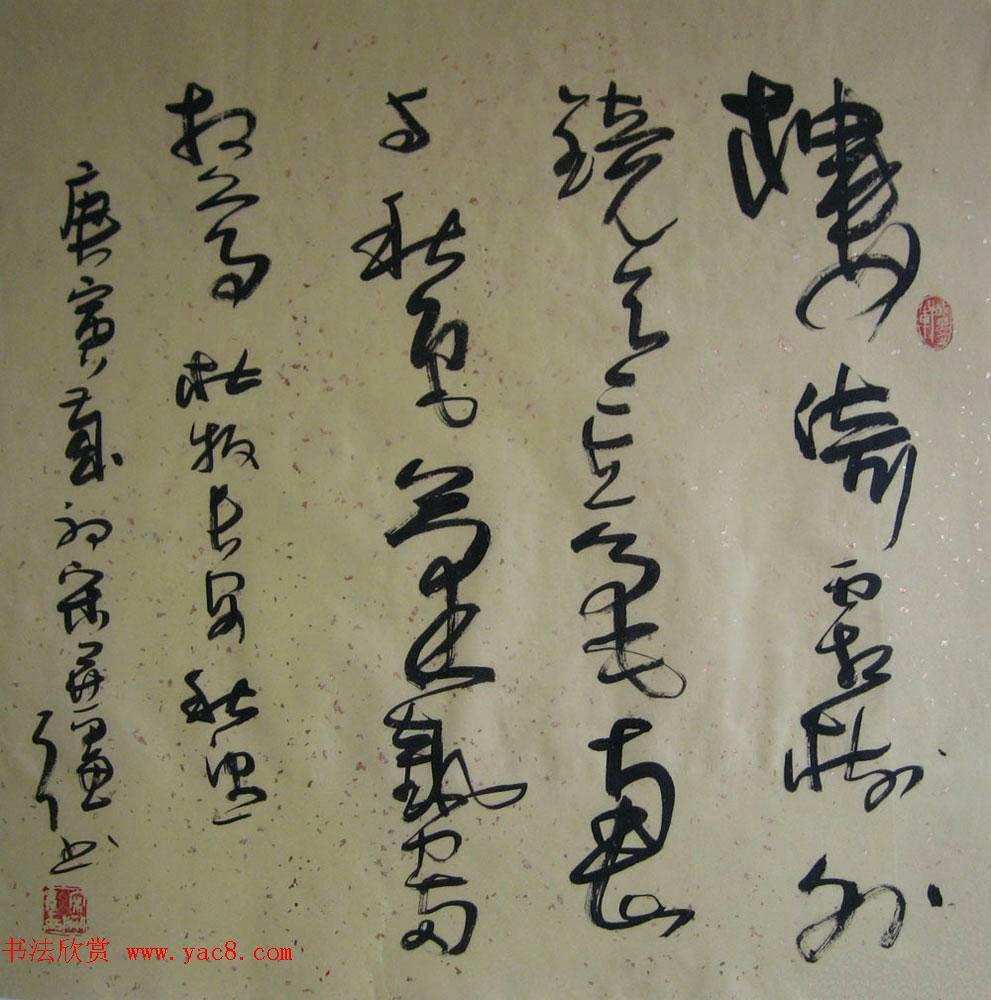 樓倚霜樹外
鏡天一毫南山
与秋色氣勢两
相高 杜牧长安秋望
庚寅歲初宋书
书法欣赏 www.yac8.com